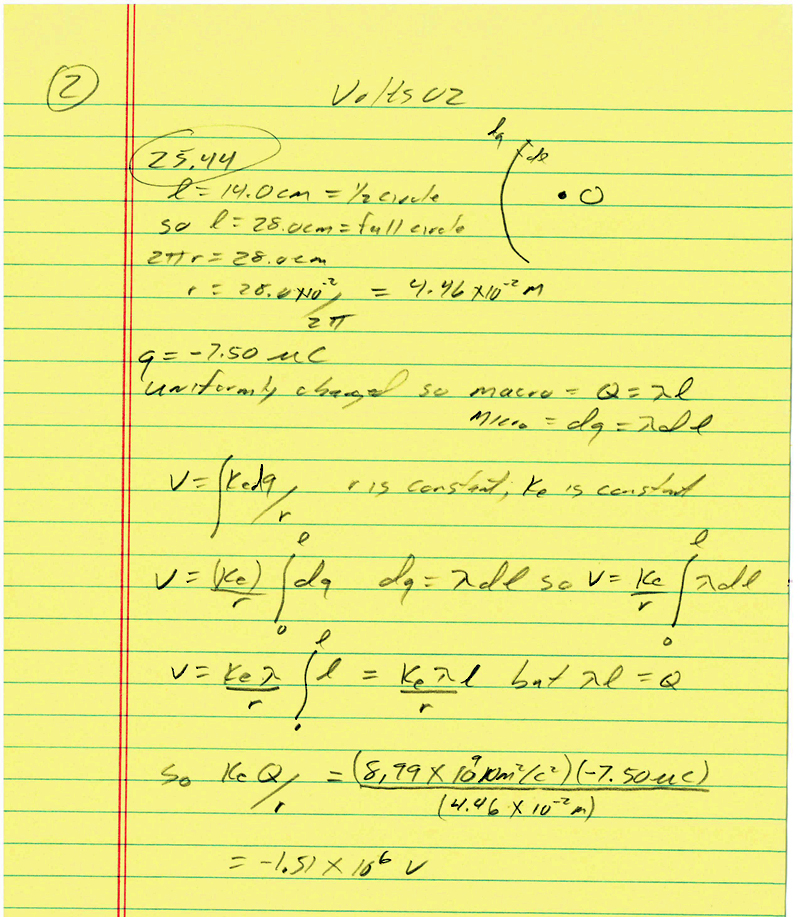 2
Volts 02
25.44
dq dl
l = 14.0cm = 1/2 circle
• O
so l = 28.0cm = full circle
2πr = 28.0cm
r = 28.0 x10^-2 / 2π = 4.46 x10^-2 m
q = -7.50 uC
uniformly charged so macro = Q = λl
micro = dq = λdl
V = ∫ Kedq / r r is constant, Ke is constant
V = (Ke) / r ∫_0^l dq dq = λdl so V = Ke / r ∫_0^l λdl
V = Ke λ / r ∫_0^l l = Ke λl / r but λl = Q
so Ke Q / r = (8.99 x 10^9 Nm²/c²)(-7.50uC) / (4.46 x 10^-2 m)
= -1.51 x 10^6 V